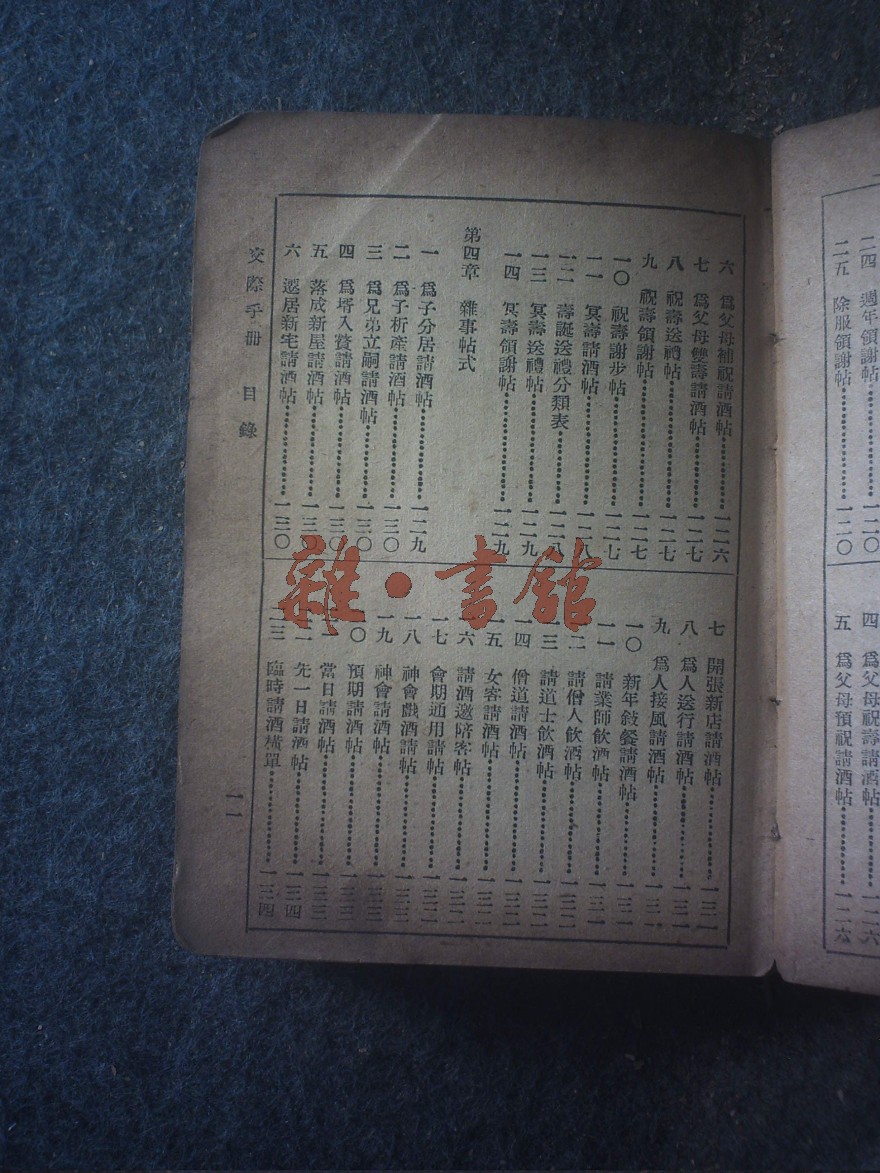 二四　週年領謝帖………一二〇
二五　除服領謝帖………一二〇
四　爲父母祝壽請酒帖………一二六
五　爲父母預祝請酒帖………一二六
六　爲父母補祝請酒帖………一二六
七　爲父母雙壽請酒帖………一二七
八　祝壽送禮帖………一二七
九　祝壽領謝帖………一二七
一〇　祝壽謝步帖………一二七
一一　冥壽請酒帖………一二八
一二　壽誕送禮分類表………一二八
一三　冥壽送禮帖………一二九
一四　冥壽領謝帖………一二九
第四章　雜事帖式
一　爲子分居請酒帖………一二九
二　爲子析產請酒帖………一三〇
三　爲兄弟立嗣請酒帖………一三〇
四　爲壻入贅請酒帖………一三〇
五　落成新屋請酒帖………一三〇
六　遷居新宅請酒帖………一三〇
七　開張新店請酒帖………一三一
八　爲人送行請酒帖………一三一
九　爲人接風請酒帖………一三一
一〇　新年敍餐請酒帖………一三一
一一　請業師飲酒帖………一三一
一二　請僧人飲酒帖………一三二
一三　請道士飲酒帖………一三二
一四　僧道請酒帖………一三二
一五　女客請酒帖………一三二
一六　請酒邀陪客帖………一三二
一七　會期通用請帖………一三三
一八　神會戲酒請帖………一三三
一九　神會請酒帖………一三三
二〇　預期請酒帖………一三三
二一　當日請酒帖………一三三
二二　先一日請酒帖………一三四
二三　臨時請酒橫單………一三四
交際手册　目錄
一一
雜·書舘